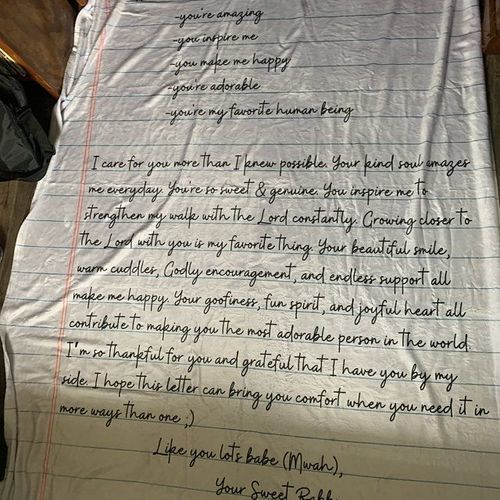 -you're amazing
-you inspire me
-you make me happy
-you're adorable
-you're my favorite human being
I care for you more than I knew possible. Your kind soul amazes
me everyday. You're so sweet & genuine. You inspire me to
strengthen my walk with the Lord constantly. Growing closer to
the Lord with you is my favorite thing. Your beautiful smile,
warm cuddles, Godly encouragement, and endless support all
make me happy. Your goofiness, fun spirit, and joyful heart all
contribute to making you the most adorable person in the world.
I'm so thankful for you and grateful that I have you by my
side. I hope this letter can bring you comfort when you need it in
more ways than one ;)
Like you lots babe (Mwah),
Your Sweet